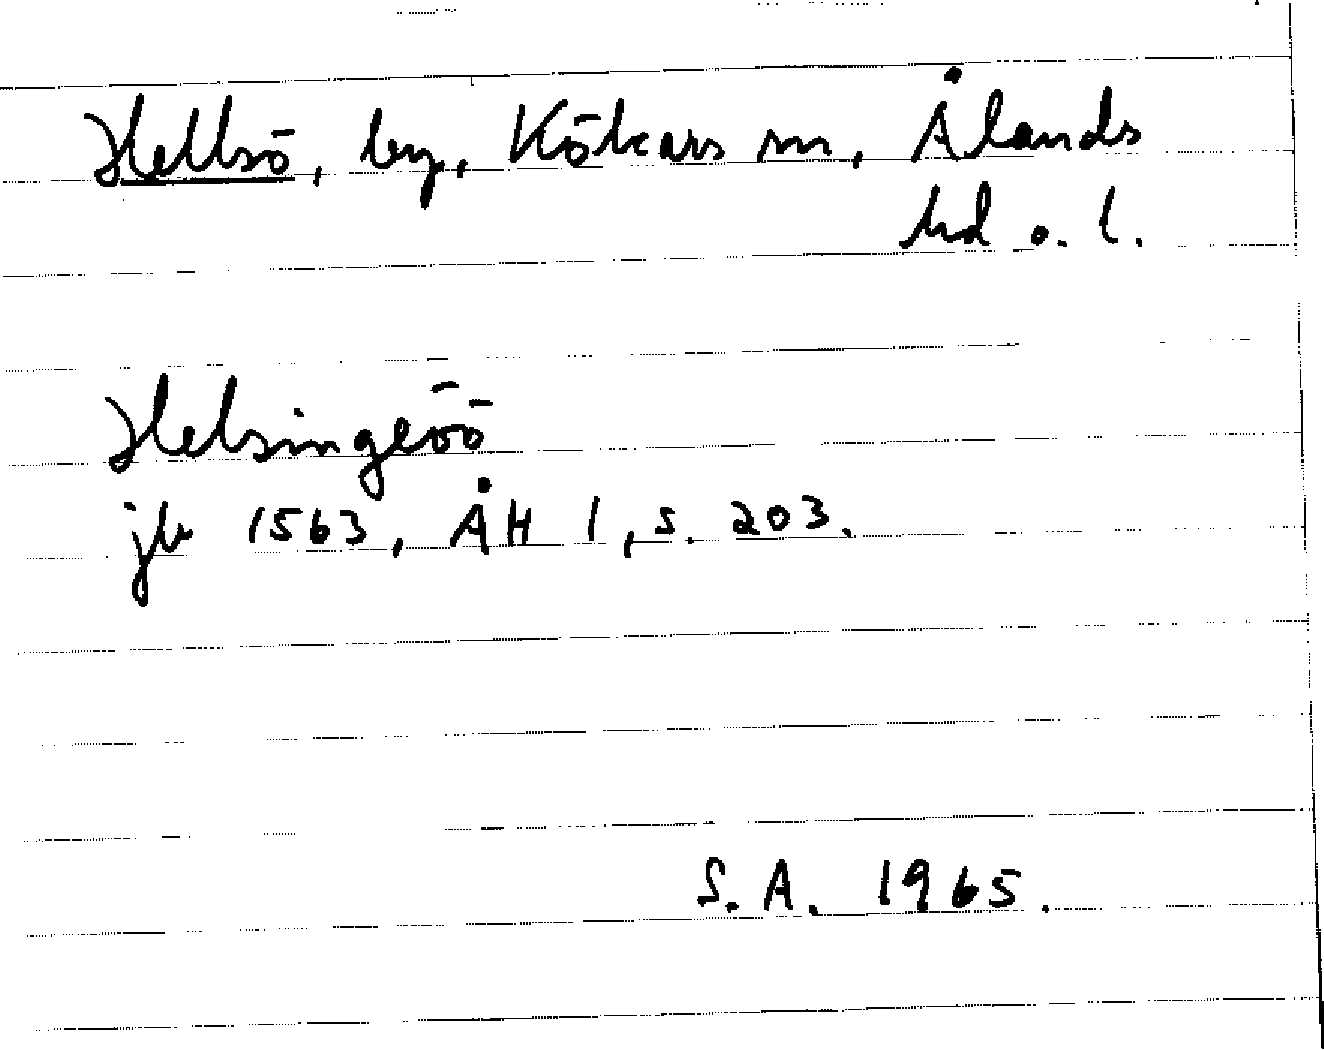 Hellsö, by, Kökars sn, Ålands
hd o. l.
Helsingeöö
jb 1563, ÅH 1, s. 203.
S.A. 1965.